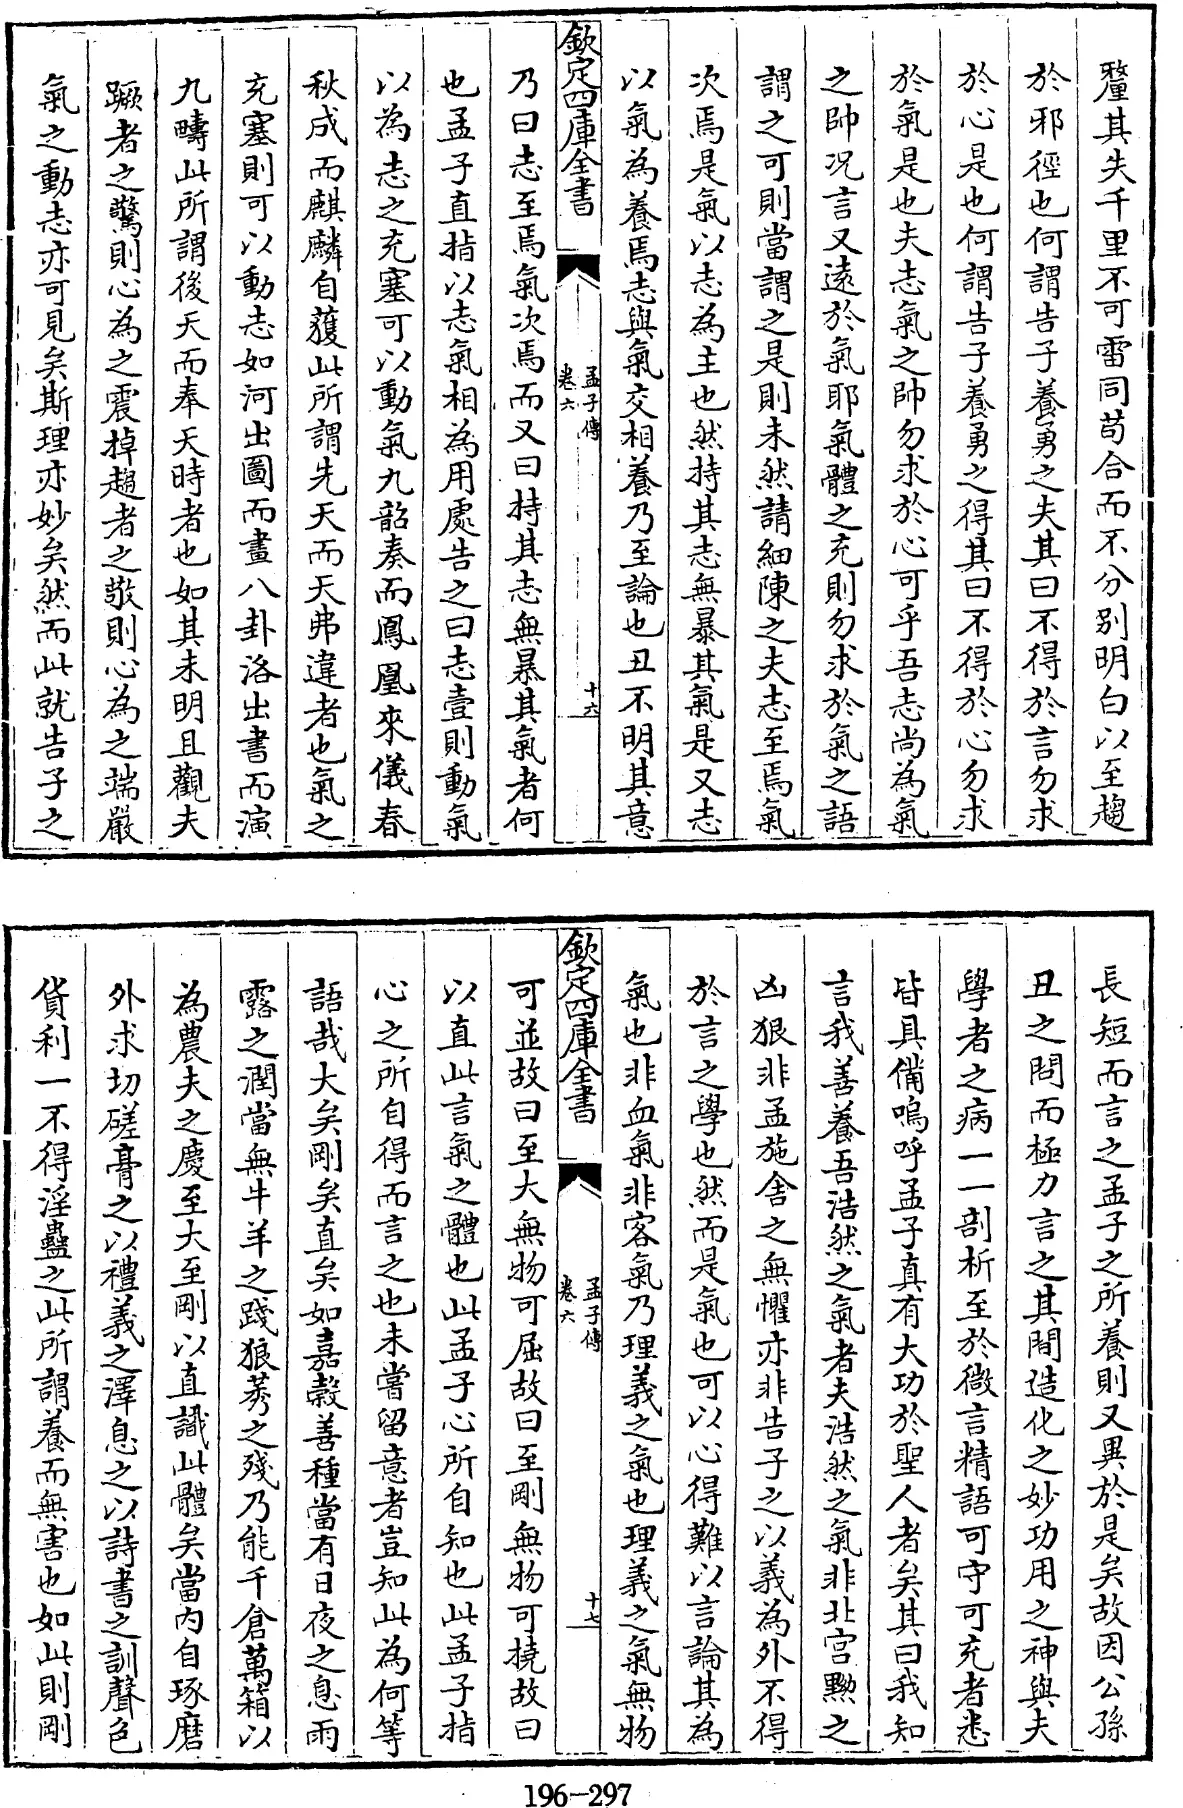 氂其失千里不可雷同苟合而不分别明白以至趨
於邪徑也何謂告子養勇之失其曰不得於言勿求
於心是也何謂告子養勇之得其曰不得於心勿求
於氣是也夫志氣之帥勿求於心可乎吾志尚為氣
之帥况言又逺於氣耶氣體之充則勿求於氣之語
謂之可則當謂之是則未然請細陳之夫志至焉氣
次焉是氣以志為主也然持其志無暴其氣是又志
以氣為養焉志與氣交相養乃至論也丑不明其意
欽定四庫全書
孟子傳
卷六
十六
乃曰志至焉氣次焉而又曰持其志無暴其氣者何
也孟子直指以志氣相為用處告之曰志壹則動氣
以為志之充塞可以動氣九韶奏而鳳凰來儀春
秋成而麒麟自獲此所謂先天而天弗違者也氣之
充塞則可以動志如河出圖而畫八卦洛出書而演
九疇此所謂後天而奉天時者也如其未明且觀夫
蹶者之驚則心為之震掉趨者之敬則心為之端嚴
氣之動志亦可見矣斯理亦妙矣然而此就告子之
長短而言之孟子之所養則又異於是矣故因公孫
丑之問而極力言之其間造化之妙功用之神與夫
學者之病一一剖析至於微言精語可守可充者悉
皆具備嗚呼孟子真有大功於聖人者矣其曰我知
言我善養吾浩然之氣者夫浩然之氣非北宫黝之
凶狠非孟施舍之無懼亦非告子之以義為外不得
於言之學也然而是氣也可以心得難以言論其為
氣也非血氣非客氣乃理義之氣也理義之氣無物
欽定四庫全書
孟子傳
卷六
十七
可並故曰至大無物可屈故曰至剛無物可撓故曰
以直此言氣之體也此孟子心所自知也此孟子指
心之所自得而言之也未嘗留意者豈知此為何等
語哉大矣剛矣直矣如嘉穀善種當有日夜之息雨
露之潤當無牛羊之踐狼莠之殘乃能千倉萬箱以
為農夫之慶至大至剛以直識此體矣當内自琢磨
外求切磋膏之以禮義之澤息之以詩書之訓聲色
貨利一不得淫蠱之此所謂養而無害也如此則剛
196-297